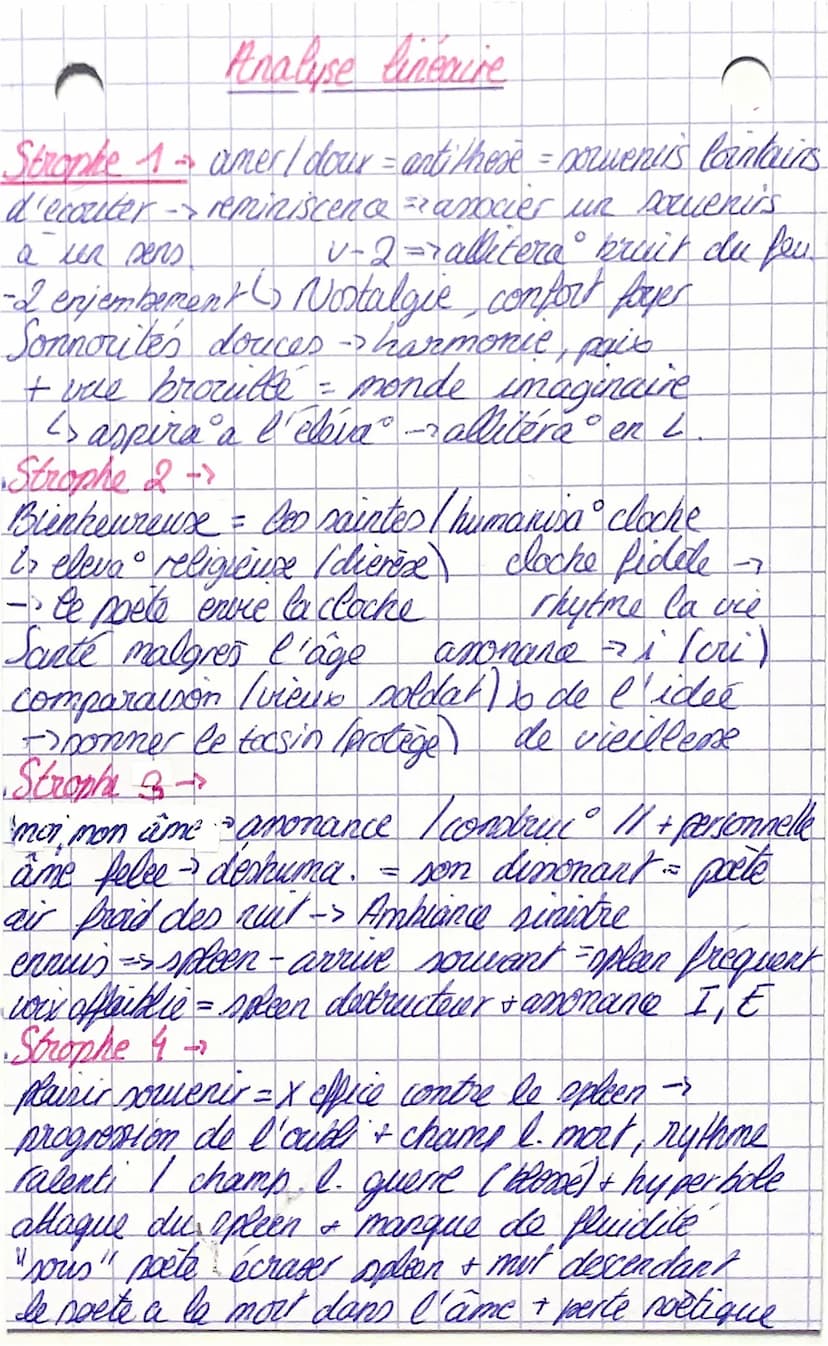 Analyse linéaire
Strophe 1 → amer / doux = antithese = souvenirs lointains
d'écouter → reminiscence => associer un souvenirs
a un sens. v-2 => allitera° bruit du feu.
-2 enjembement ↳ Nostalgie, confort foyer
Sonnorités douces → harmonie, paix
+ vue brouillé = monde imaginaire
↳ aspira° a l'éléva° → allitéra° en L.
.Strophe 2 →
Bienheureuse = les saintes / humanisa° cloche
↳ eleva° religieuse (dierèse) cloche fidèle →
→ le poète envie la cloche rhytme la vie
Santé malgres l'âge assonance → i (cri)
comparaison (vieux soldat) de l'idée
→ sonner le tocsin (protège) de vieillesse
.Strophe 3 →
moi, mon âme → assonance / construc° // + personnelle
âme felee → deshuma. = son dissonant = poète
air froid des nuit → Ambiance sinistre
ennuis => spleen - arrive souvant = spleen fréquent
voix affaiblie = spleen destructeur + assonance I, E
.Strophe 4 →
plaisir souvenir = X efficce contre le spleen →
progression de l'oubli + champ l. mort, rythme
ralenti / champ. l. guerre (blessé) + hyperbole
attaque du spleen + manque de fluidité
"sous" poète écraser spleen + mvt descendant
le poete a la mort dans l'âme + perte poètique